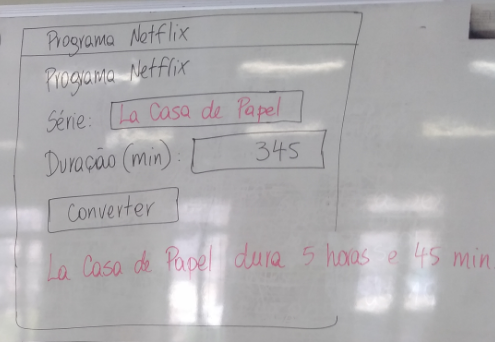 Programa Netflix
Programa Netflix
Série: La Casa de Papel
Duração (min): 345
Converter
La Casa de Papel dura 5 horas e 45 min